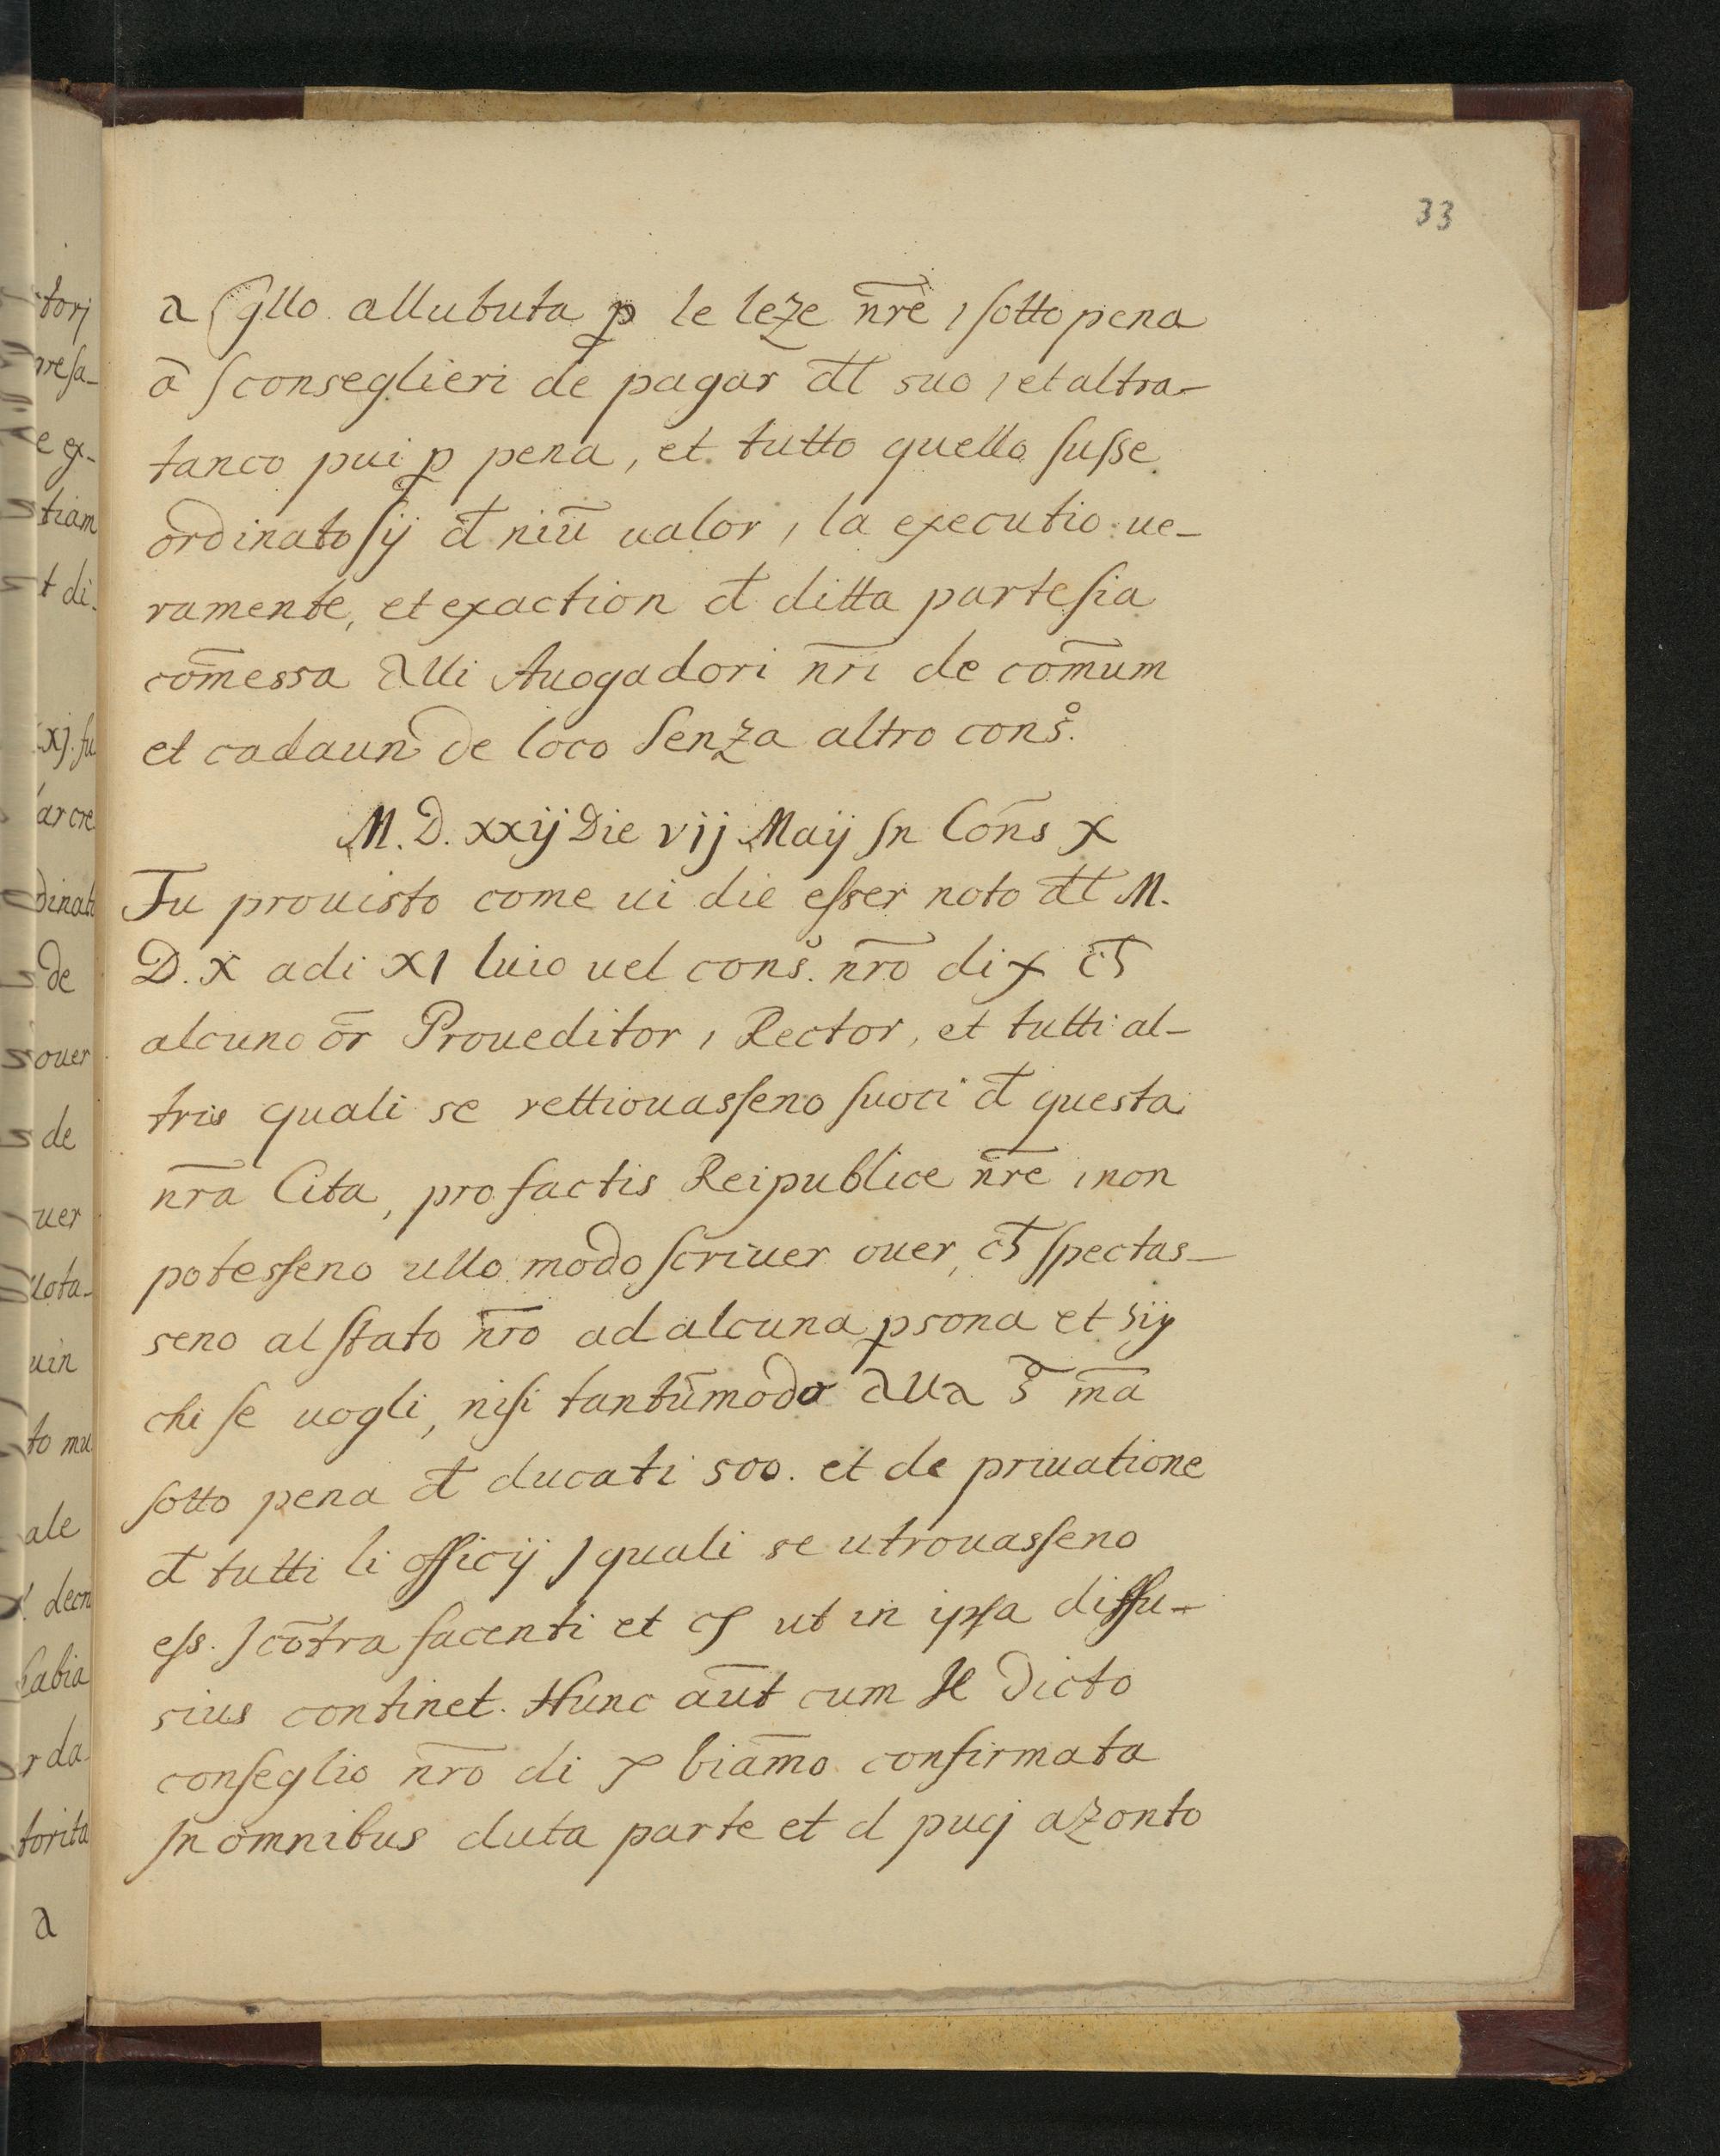 33
a qllo allubuta p le leze nr̃e, sotto pena
a ſconseglieri de pagar dl suo, et altra-
tanco pui p pena, et tutto quello fuſse
ordinato ſij d niũ ualor, la executio ue-
ramente, et exaction d ditta parte ſia
com̃essa alli Auogadori nr̃i de com̃um
et cadaun de loco Senza altro cons.
M. D. xxij Die vij Maij In Coñs X
Fu prouisto come ui die eſser noto dl M.
D. X adi XI luio nel cons. nr̃o di X
alcuno or̃ Proueditor, Rector, et tutti al-
tris quali se rettiouasſeno fuori d questa
nr̃a Cita, pro factis Reipublice nr̃e, non
potesſeno ullo modo ſcriuer ouer, ſpectas-
seno al ſtato nr̃o ad alcuna psona et sij
chi ſe uogli, niſi tantũmodo alla S mã
ſotto pena d ducati 500. et de priuatione
d tutti li officij quali se utrouasſeno
eſs. cõtra facenti et ut in ipſa diffu-
sius continet. Hunc aũt cum dicto
conſeglio nr̃o di X biam̃o confirmata
In omnibus duta parte et d puij azonto